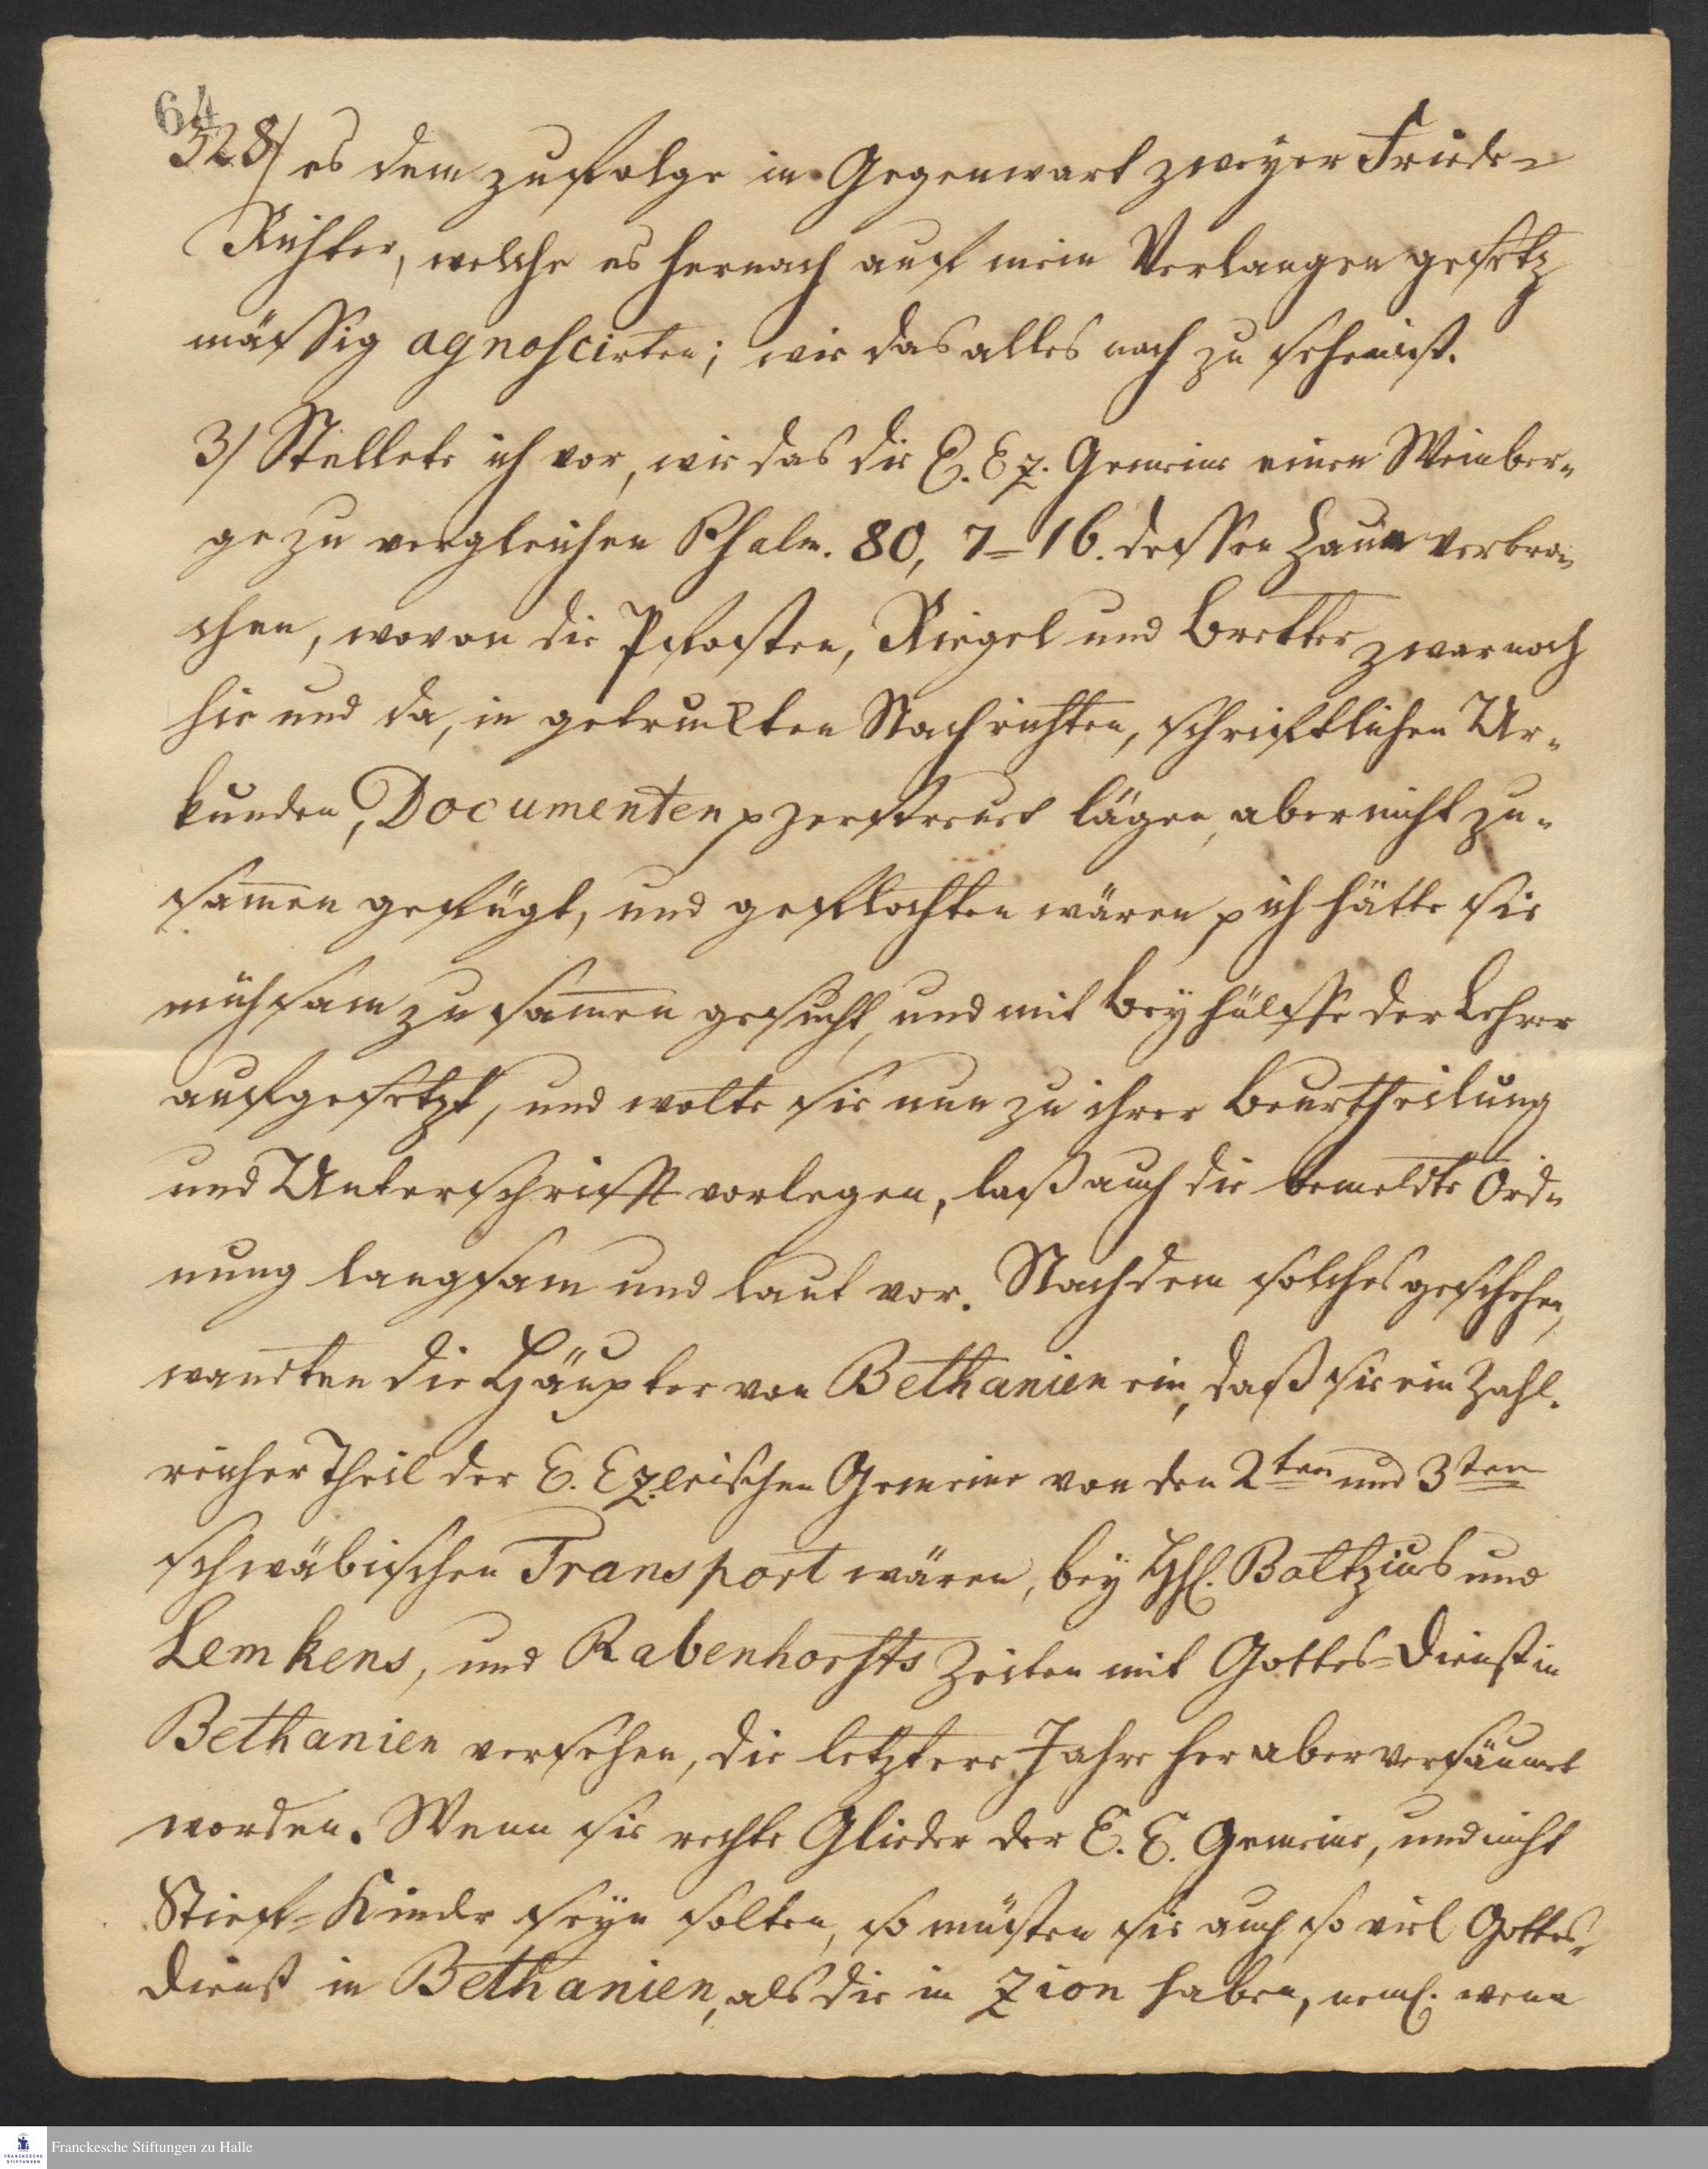 64
528/ es dem zufolge in Gegenwart zweyer Friede-
Richter, welche es hernach auf mein Verlangen gesetz
mässig agnoscirten; wie das alles noch zu sehen ist.
3/ Stellete ich vor, wie das die E. Ez. Gemeine einen Weinber-
ge zu vergleichen Psalm. 80, 7-16. dessen Zaun verbro-
chen, wovon die Pfosten, Riegel und Bretter zwar noch
hie und da, in getruckten Nachrichten, schriftlichen Ur-
kunden, Documenten p zerstreuet lägen, aber nicht zu-
sam̄en gefügt, und geflochten wären p ich hätte sie
mühsam zusam̄en gesucht, und mit Beyhülffe der Lehrer
aufgesetzt, und wolte sie nun zu ihrer Beurtheilung
und Unterschrifft vorlegen, laß auch die bemeldte Ord-
nung langsam und laut vor. Nachdem solches geschehen,
wandten die Häupter von Bethanien ein, daß sie ein Zahl-
reicher Theil der E. Ezerischen Gemeine von den 2ten und 3ten
schwäbischen Transport wären, bey HhE. Boltzius und
Lemkens, und Rabenhorsts Zeiten mit Gottes-Dienst in
Bethanien versehen, die letztere Jahre her aber versäumet
worden. Wenn sie rechte Glieder der E. E. Gemeine, und nicht
Stief-Kinder seyn solten, so müsten sie auch so viel Gottes-
Dienst in Bethanien, als die in Zion haben, neml. wenn
Franckesche Stiftungen zu Halle
FRANCKESCHE
STIFTUNGEN